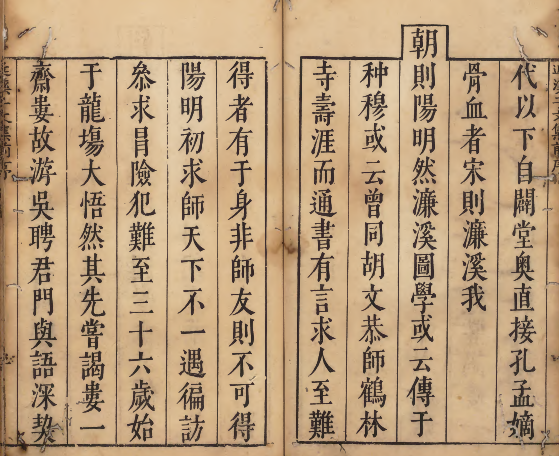 代以下自闢堂奥直接孔孟嫡
骨血者宋則濂溪我
朝則陽明然濂溪圖學或云傳于
种穆或云曾同胡文恭師鶴林
寺壽涯而通書有言求人至難
得者有于身非師友則不可得
陽明初求師天下不一遇徧訪
叅求冒險犯難至三十六歲始
于龍塲大悟然其先嘗謁婁一
齋婁故游吳聘君門與語深契